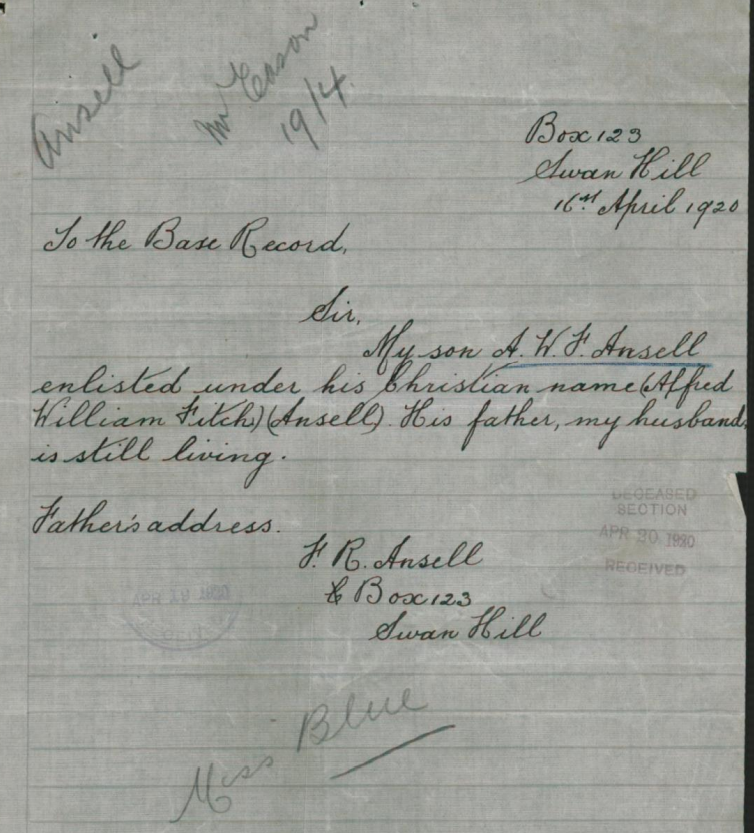 Ansell
Mr Eason
19/4.
Box 123
Swan Hill
16th April 1920
To the Base Record,
Sir,
My son A. W. F. Ansell
enlisted under his Christian name (Alfred
William Fitch) (Ansell). His father, my husband,
is still living.
Father's address.
F. R. Ansell
Box 123
Swan Hill
DECEASED
SECTION
APR 20 1920
RECEIVED
Miss Blue